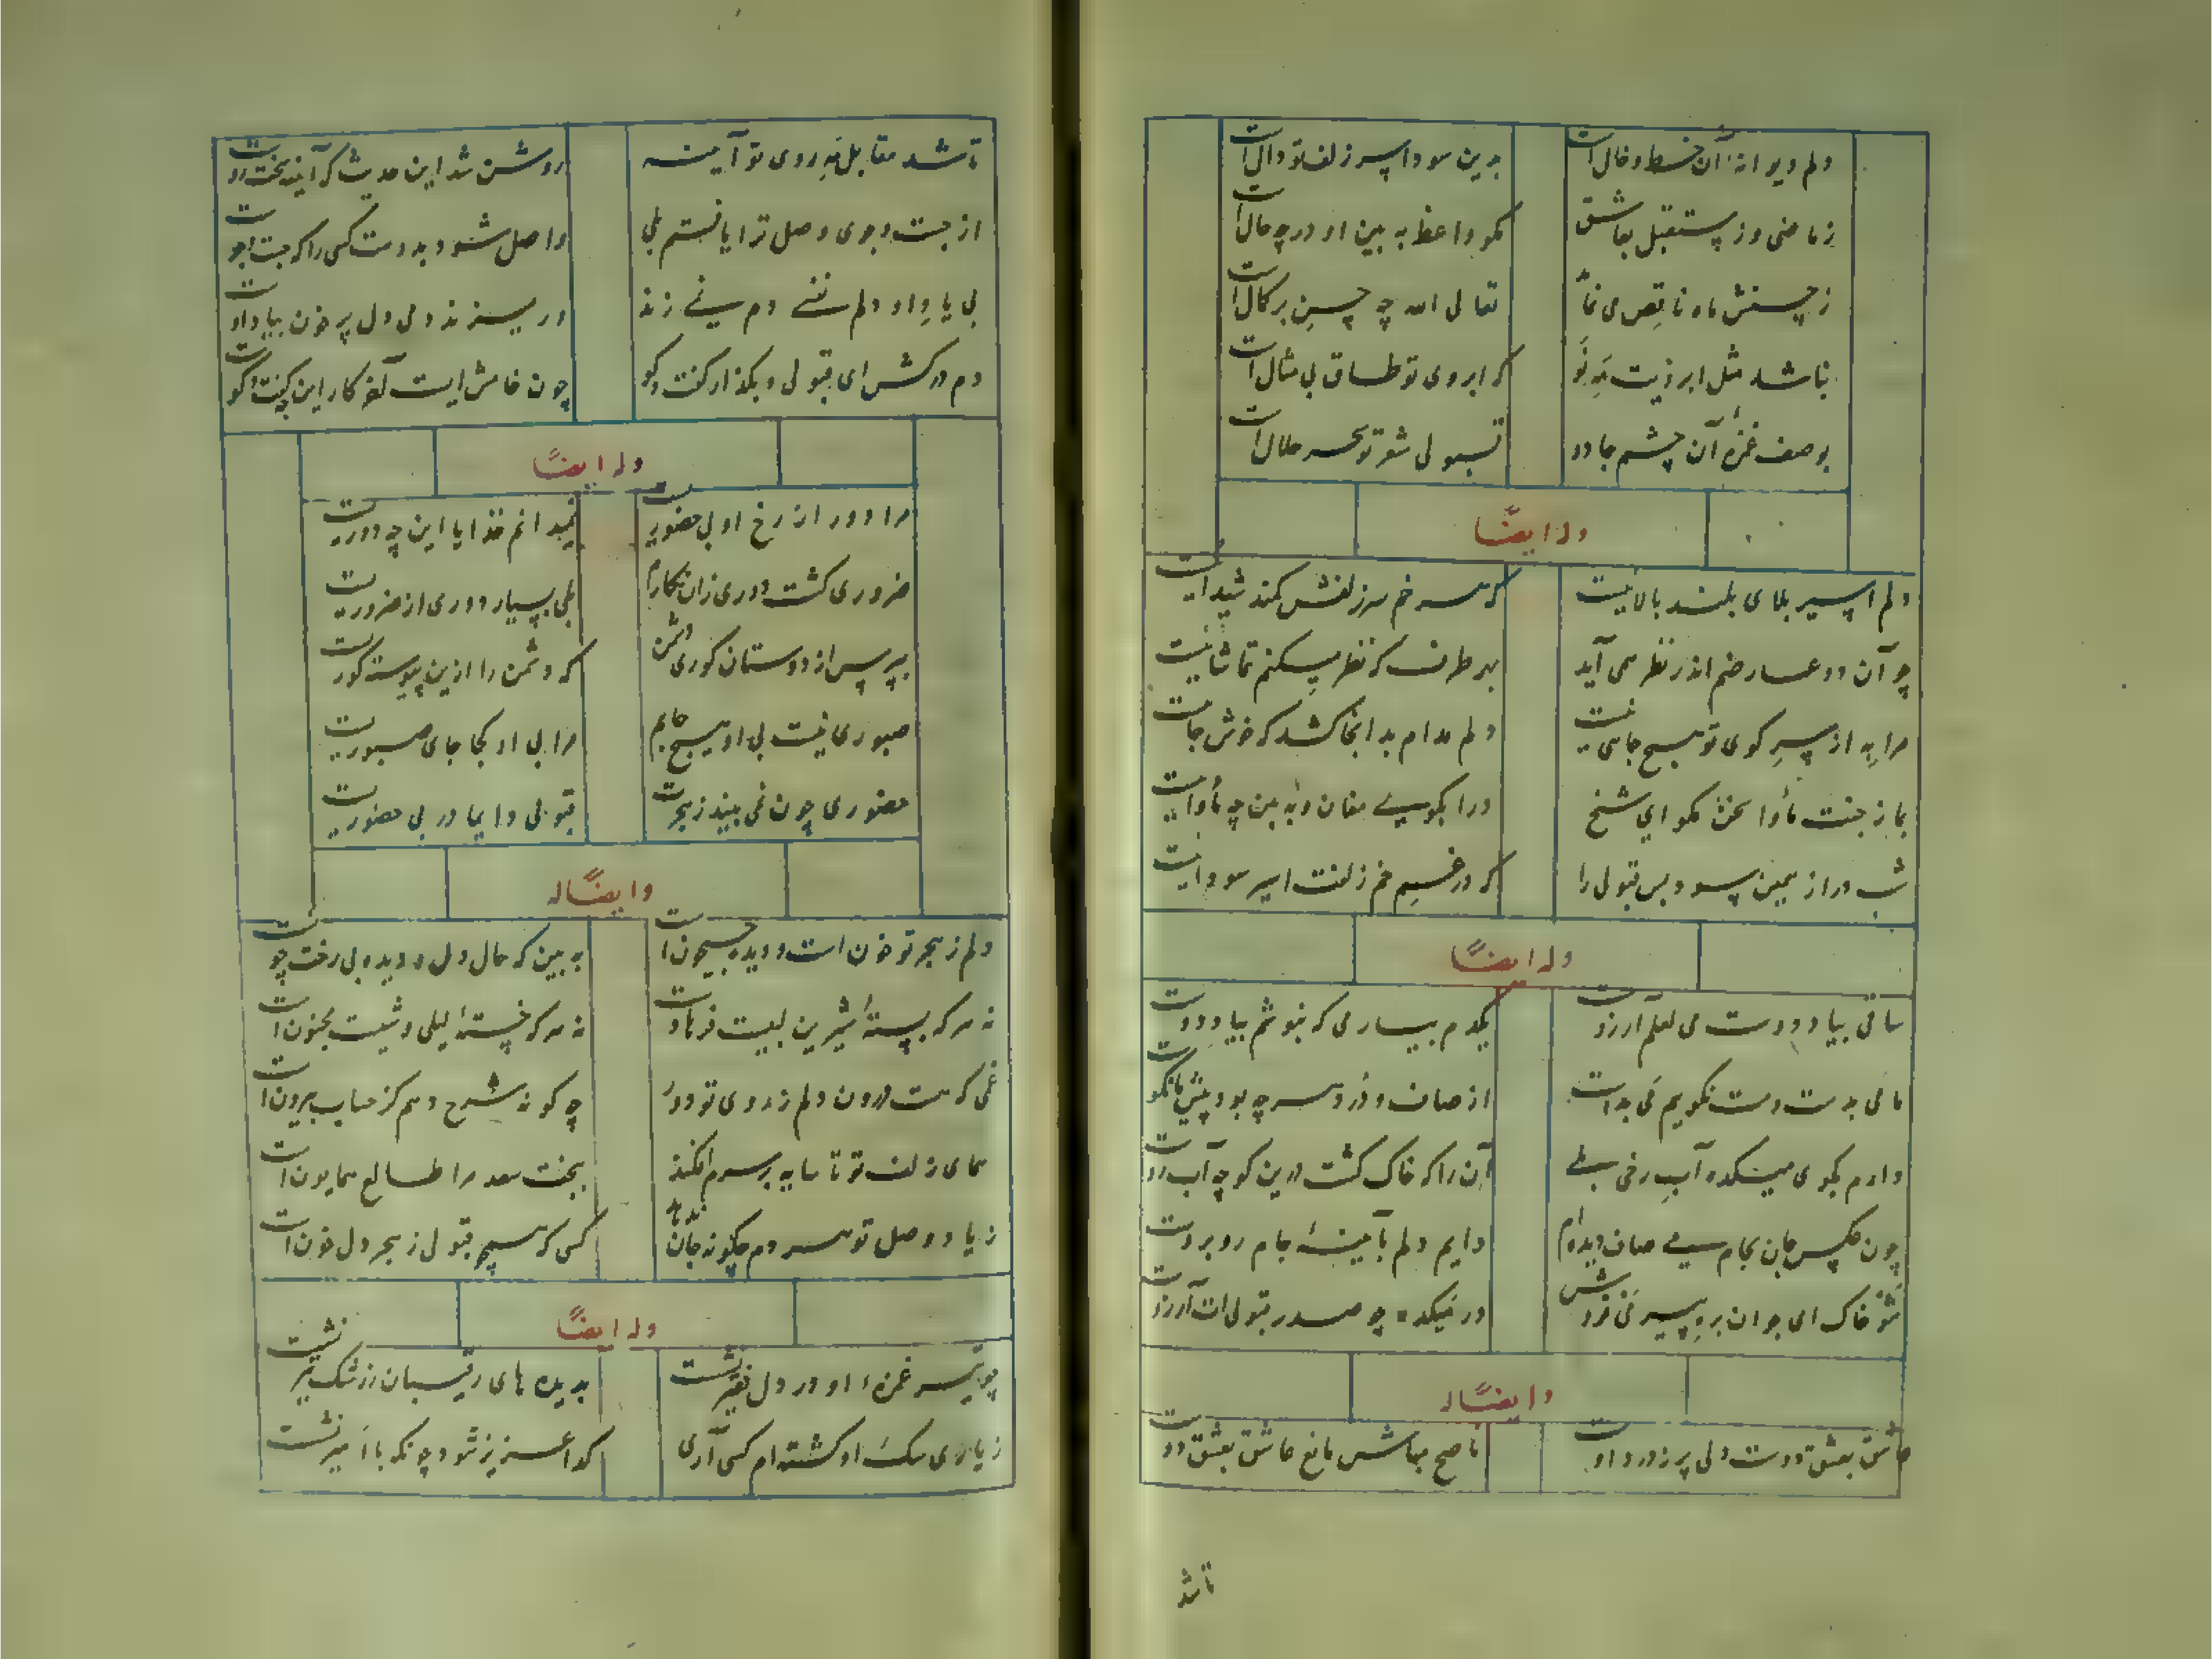 دلم دیوانهٔ آن خط و خال است
بدین سودا سر زلف تو دال است
ز ماضی و ز مستقبل بعاشق
مکو واعظ به بین او در چه حال است
ز حسنش ماه ناقص می نماید
تعالی الله چه حسن بر کمال است
نباشد مثل ابرویت مه نو
که ابروی تو طاق بی مثال است
بوصف غمزهٔ آن چشم جادو
قبولی شعر تو سحر حلال است
وله ایضًا
دلم اسیر بلای بلند بالائیست
که هر خم سر زلفش کمند شیدائیست
چو آن دو عارضم اندر نظر همی آید
بهر طرف که نظر میکنم تماشائیست
مرا به از سر کوی تو هیچ جایی نیست
دلم مدام بدانجا کشد که خوش جائیست
بما ز جنت مأوا سخن مکو ای شیخ
درا بکوی مغان و به بین چه مأوائیست
شب دراز همین سود بس قبولی را
که در غم خم زلفت اسیر سودائیست
وله ایضًا
ساقی بیا و دوست می لعلم آرزوست
یکدم بیار می که بنوشم بیاد دوست
ما می بدست دست نکویم می بد است
از صاف و درد هر چه بود پیش ما نکوست
دارم بکوی میکده آب رخی بلی
آن را که خاک کشت درین کوچه آب روست
چون عکس جان بجام می صاف دیده‌ام
دایم دلم بآینهٔ جام روبروست
شو خاک ای جوان بره پیر می فروش
در میکده چو صدر قبولی ات آرزوست
وایضًا له
عاشق بعشق دوست ولی پر ز درد اوست
ناصح مباش مانع عاشق بعشق دوست
تا شد
تا شد مقابل مه روی تو آینه
روشن شد این حدیث که آینه سخت روست
از جست و جوی وصل ترا یافتم بلی
واصل شود بدوست کسی را که جست و جوست
بی یاد او دلم نفسی دم نمی زند
در سینه زنده ولی دل پر خون بیاد اوست
دم درکش ای قبولی و بکذار کفت و کو
چون خامشیست آخر کار این چه کفت و کوست
وله ایضًا
مرا دور از رخ او بی حضوریست
نمیدانم خدایا این چه دوریست
ضروری کشت دوری زان نکارم
بلی بسیار دوری از ضروریست
بپرس از دوستان کوری دشمن
که دشمن را ازین پیوسته کوریست
صبوری نیست بی او هیچ جایم
مرا بی او کجا جای صبوریست
حضوری چون نمی بیند ز هجرت
قبولی دایما در بی حضوریست
وایضًا له
دلم ز هجر تو خون است و دیده جیحون است
به بین که حال دل و دیده بی رخت چونست
نه هر که بستهٔ شیرین لبیست فرهاد است
نه هر که خستهٔ لیلی وشیست مجنون است
غمی که هست درون دلم ز روی تو دور
چه کونه شرح دهم کز حساب بیرون است
همای زلف تو تا سایه بر سرم افکند
ببخت سعد مرا طالع همایون است
ز یاد وصل تو هر دم چکونه جان ندهد
کسی که همچو قبولی ز هجر دل خون است
وله ایضًا
چو تیر غمزهٔ او در دل فقیر نشست
بدیده های رقیبان ز رشک تیر نشست
ز یاری سک او کشته ام کسی آری
کدا عزیز شود چونکه با امیر نشست